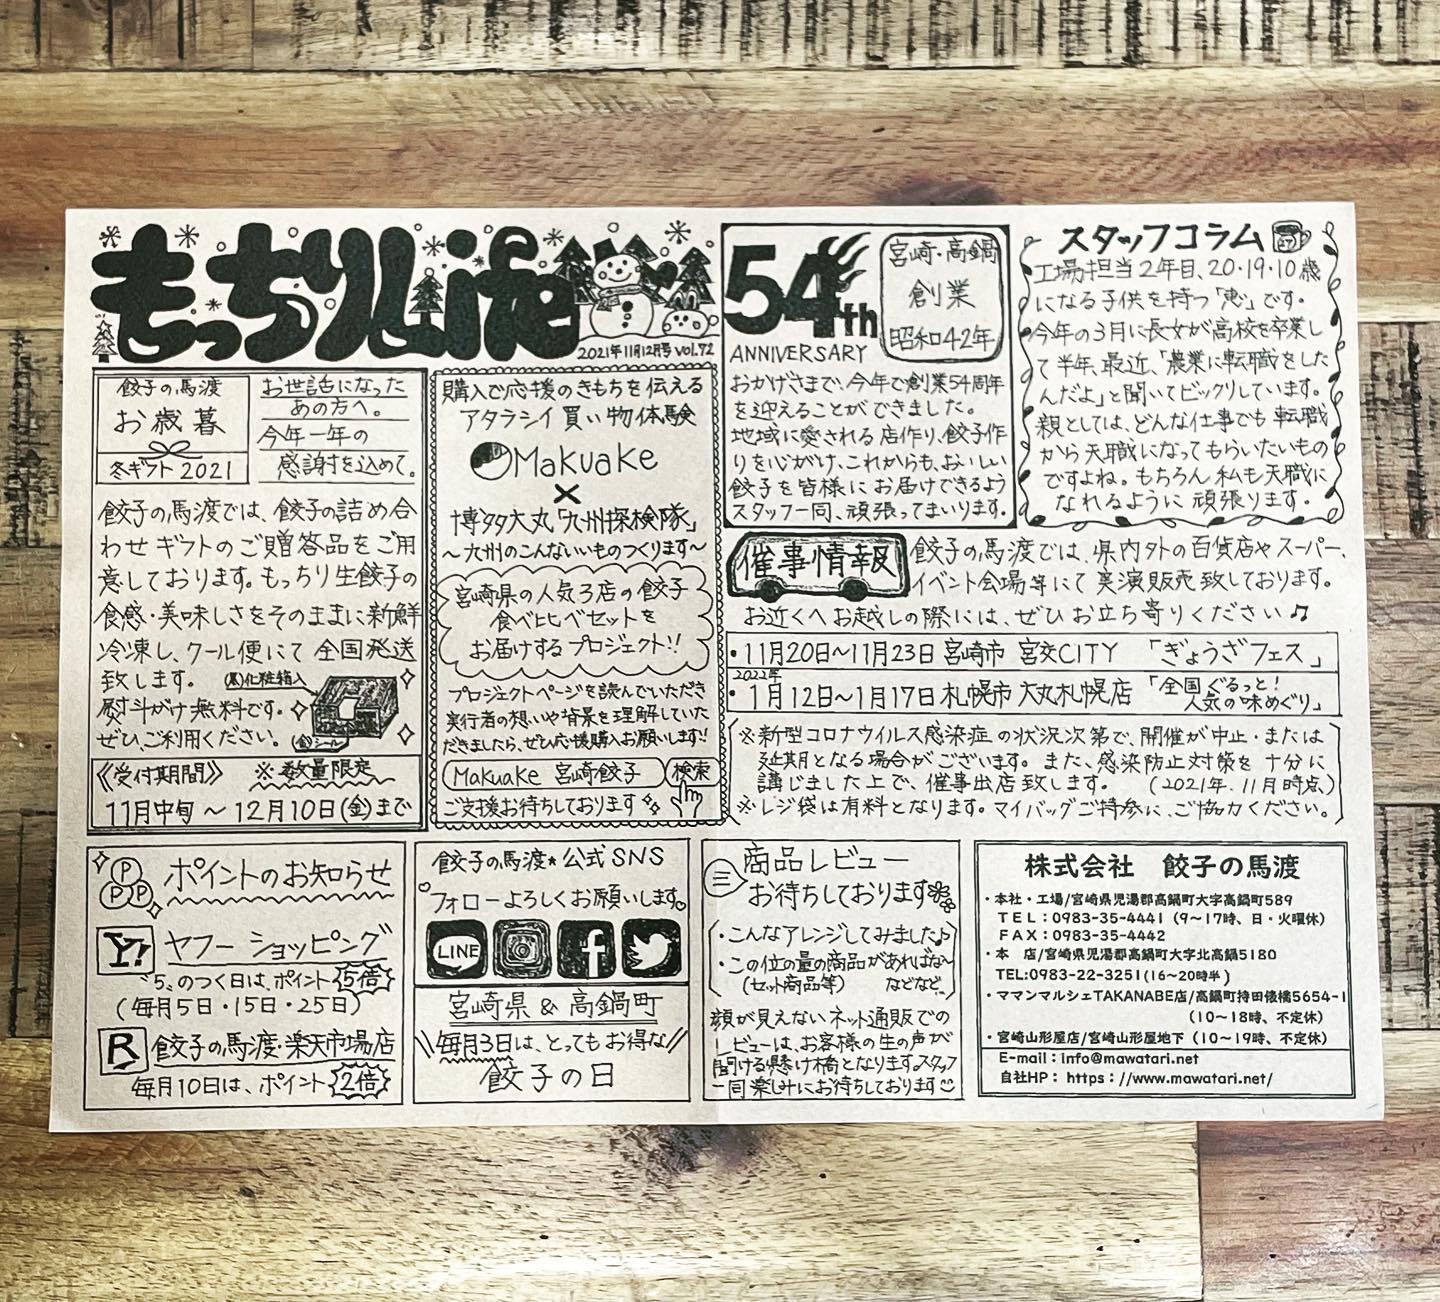 もっちりLife
2021年11月12月号 vol.72
餃子の馬渡
お歳暮
冬ギフト2021
お世話になった
あの方へ。
今年一年の
感謝を込めて。
餃子の馬渡では、餃子の詰め合
わせギフトのご贈答品をご用
意しております。もっちり生餃子の
食感・美味しさをそのままに新鮮
冷凍し、クール便にて全国発送
致します。
(黒)化粧箱入
熨斗がけ無料です。
ぜひ、ご利用ください。
(金)シール
《受付期間》 ※数量限定
11月中旬〜12月10日(金)まで
購入で応援のきもちを伝える
アタラシイ買い物体験
Makuake
×
博多大丸「九州探検隊」
〜九州のこんないいものつくります〜
宮崎県の人気3店の餃子
食べ比べセットを
お届けするプロジェクト!!
プロジェクトページを読んでいただき
実行者の想いや背景を理解していた
だきましたら、ぜひ応援購入お願いします!!
Makuake 宮崎餃子 検索
ご支援お待ちしております
54th
ANNIVERSARY
宮崎・高鍋
創業
昭和42年
おかげさまで、今年で創業54周年
を迎えることができました。
地域に愛される店作り、餃子作
りを心がけ、これからも、おいしい
餃子を皆様にお届けできるよう
スタッフ一同、頑張ってまいります。
スタッフコラム
27
工場担当2年目、20・19・10歳
になる子供を持つ「恵」です。
今年の3月に長女が高校を卒業し
て半年、最近、「農業に転職をした
んだよ」と聞いてビックリしています。
親としては、どんな仕事でも転職
から天職になってもらいたいもの
ですよね。もちろん私も天職に
なれるように頑張ります。
催事情報
餃子の馬渡では、県内外の百貨店やスーパー、
イベント会場等にて実演販売致しております。
お近くへお越しの際には、ぜひお立ち寄りください♫
・11月20日〜11月23日 宮崎市 宮交CITY 「ぎょうざフェス」
2022年
・1月12日〜1月17日 札幌市 大丸札幌店 「全国ぐるっと!
人気の味めぐり」
※新型コロナウイルス感染症の状況次第で、開催が中止・または
延期となる場合がございます。また、感染防止対策を十分に
講じました上で、催事出店致します。 (2021年.11月時点)
※レジ袋は有料となります。マイバッグご持参に、ご協力ください。
P
P P
ポイントのお知らせ
Y! ヤフーショッピング
“5”のつく日は、ポイント5倍
(毎月5日・15日・25日)
R 餃子の馬渡・楽天市場店
毎月10日は、ポイント2倍
餃子の馬渡★公式SNS
フォローよろしくお願いします。
LINE
宮崎県&高鍋町
毎月3日は、とってもお得な
餃子の日
商品レビュー
お待ちしております
・こんなアレンジしてみました♪
・この位の量の商品があればな〜
(セット商品等) などなど…
顔が見えないネット通販での
レビューは、お客様の生の声が
聞ける懸け橋となります。スタッフ
一同楽しみにお待ちしております
株式会社 餃子の馬渡
・本社・工場/宮崎県児湯郡高鍋町大字高鍋町589
TEL:0983-35-4441(9〜17時、日・火曜休)
FAX:0983-35-4442
・本 店/宮崎県児湯郡高鍋町大字北高鍋5180
TEL:0983-22-3251(16〜20時半)
・ママンマルシェTAKANABE店/高鍋町持田俵橋5654-1
(10〜18時、不定休)
・宮崎山形屋店/宮崎山形屋地下(10〜19時、不定休)
E-mail:info@mawatari.net
自社HP:https://www.mawatari.net/